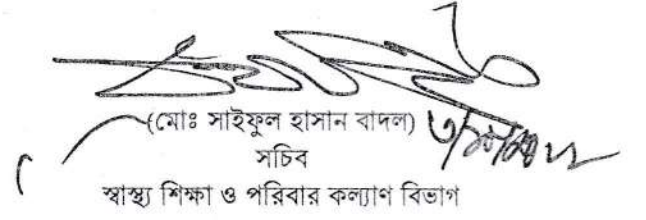 (মোঃ সাইফুল হাসান বাদল)
সচিব
স্বাস্থ্য শিক্ষা ও পরিবার কল্যাণ বিভাগ